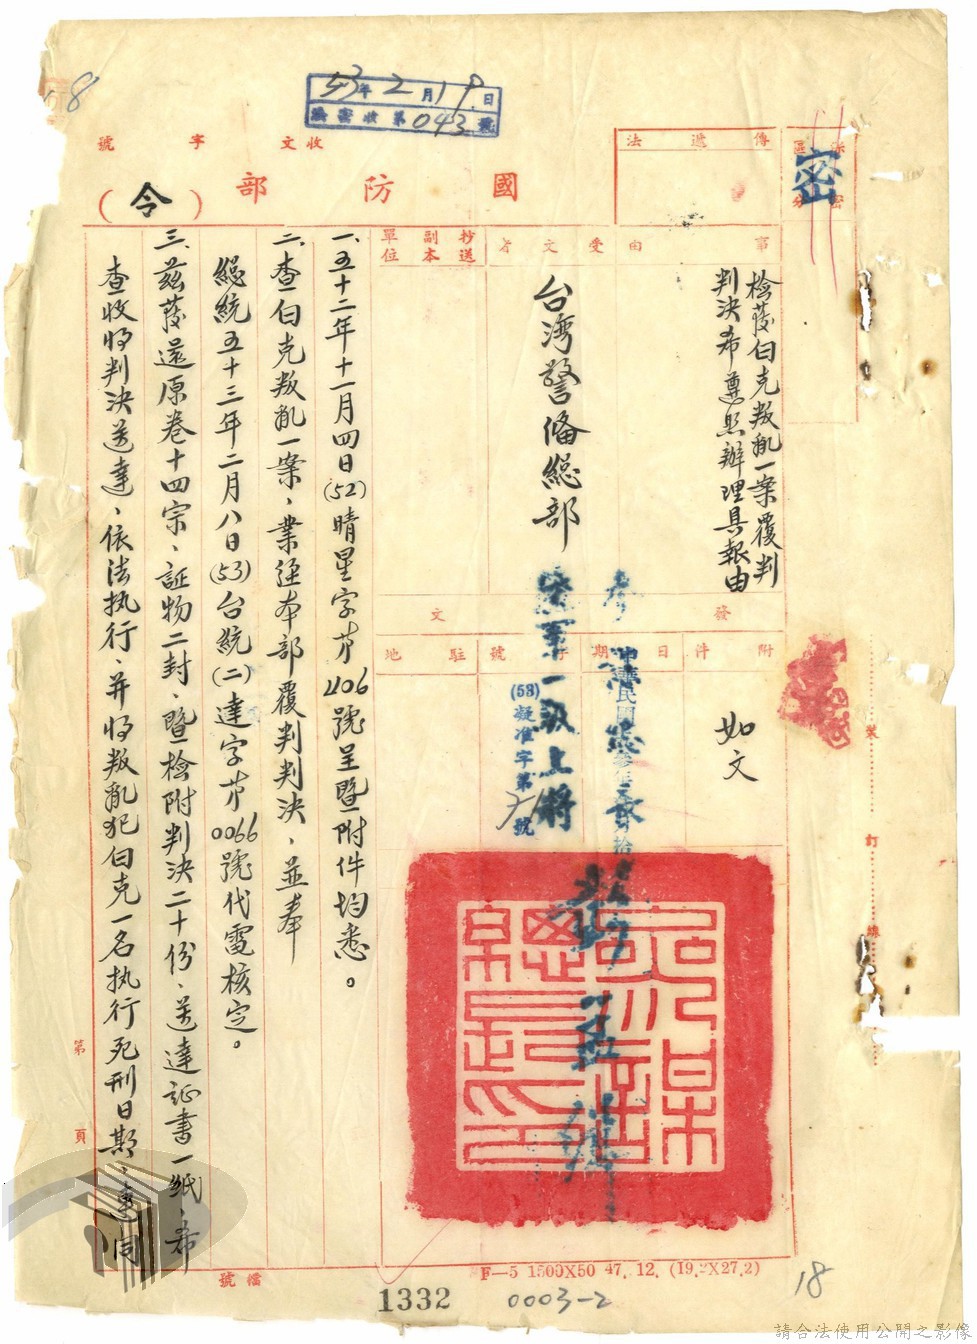 18
53年2月19日
密收第043號
收文 字 號
國防部(令)
傳遞法
保密區分
密
事由
檢發白克叛亂一案覆判
判決希遵照辦理具報由
受文者
台湾警備總部
抄送副本單位
發文
附件
如文
日期
字號
(53)凝准字第
號
駐地
參謀總長
陸軍一級上將
彭孟緝
一、五十二年十一月四日(52)晴星字第406號呈暨附件均悉。
二、查白克叛亂一案、業經本部覆判判決、並奉
總統五十三年二月八日(53)台統(二)達字第0066號代電核定。
三、茲發還原卷十四宗、証物二封、暨檢附判決二十份、送達証書一紙、希
查收將判決送達、依法执行、并將叛亂犯白克一名执行死刑日期、連同
裝
訂
線
第 頁
檔號
F—5 1500X50 47. 12. (19.2X27.2)
1332
0003-2
18
請合法使用公開之影像